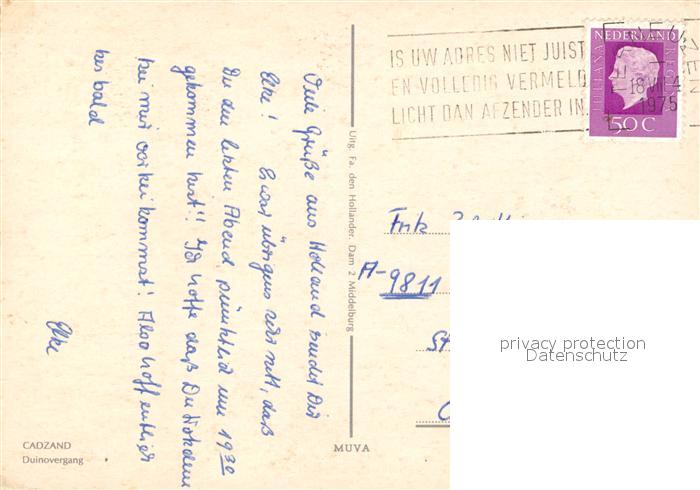 Viele Grüße aus Holland sendet Dir
Elke! Es war übrigens sehr nett, daß
Du den letzten Abend pünktlich um 19³⁰
gekommen bist!! Ich hoffe daß Du trotzdem
bei mir vorbeikommst! Also hoffentlich
bis bald
Elke
CADZAND
Duinovergang
Uitg. Fa. den Hollander, Dam 2 Middelburg
MUVA
IS UW ADRES NIET JUIST
EN VOLLEDIG VERMELD
LICHT DAN AFZENDER IN.
18 VII
1975
NEDERLAND
JULIANA REGINA
50 C
Fritz
A-9811
privacy protection
Datenschutz